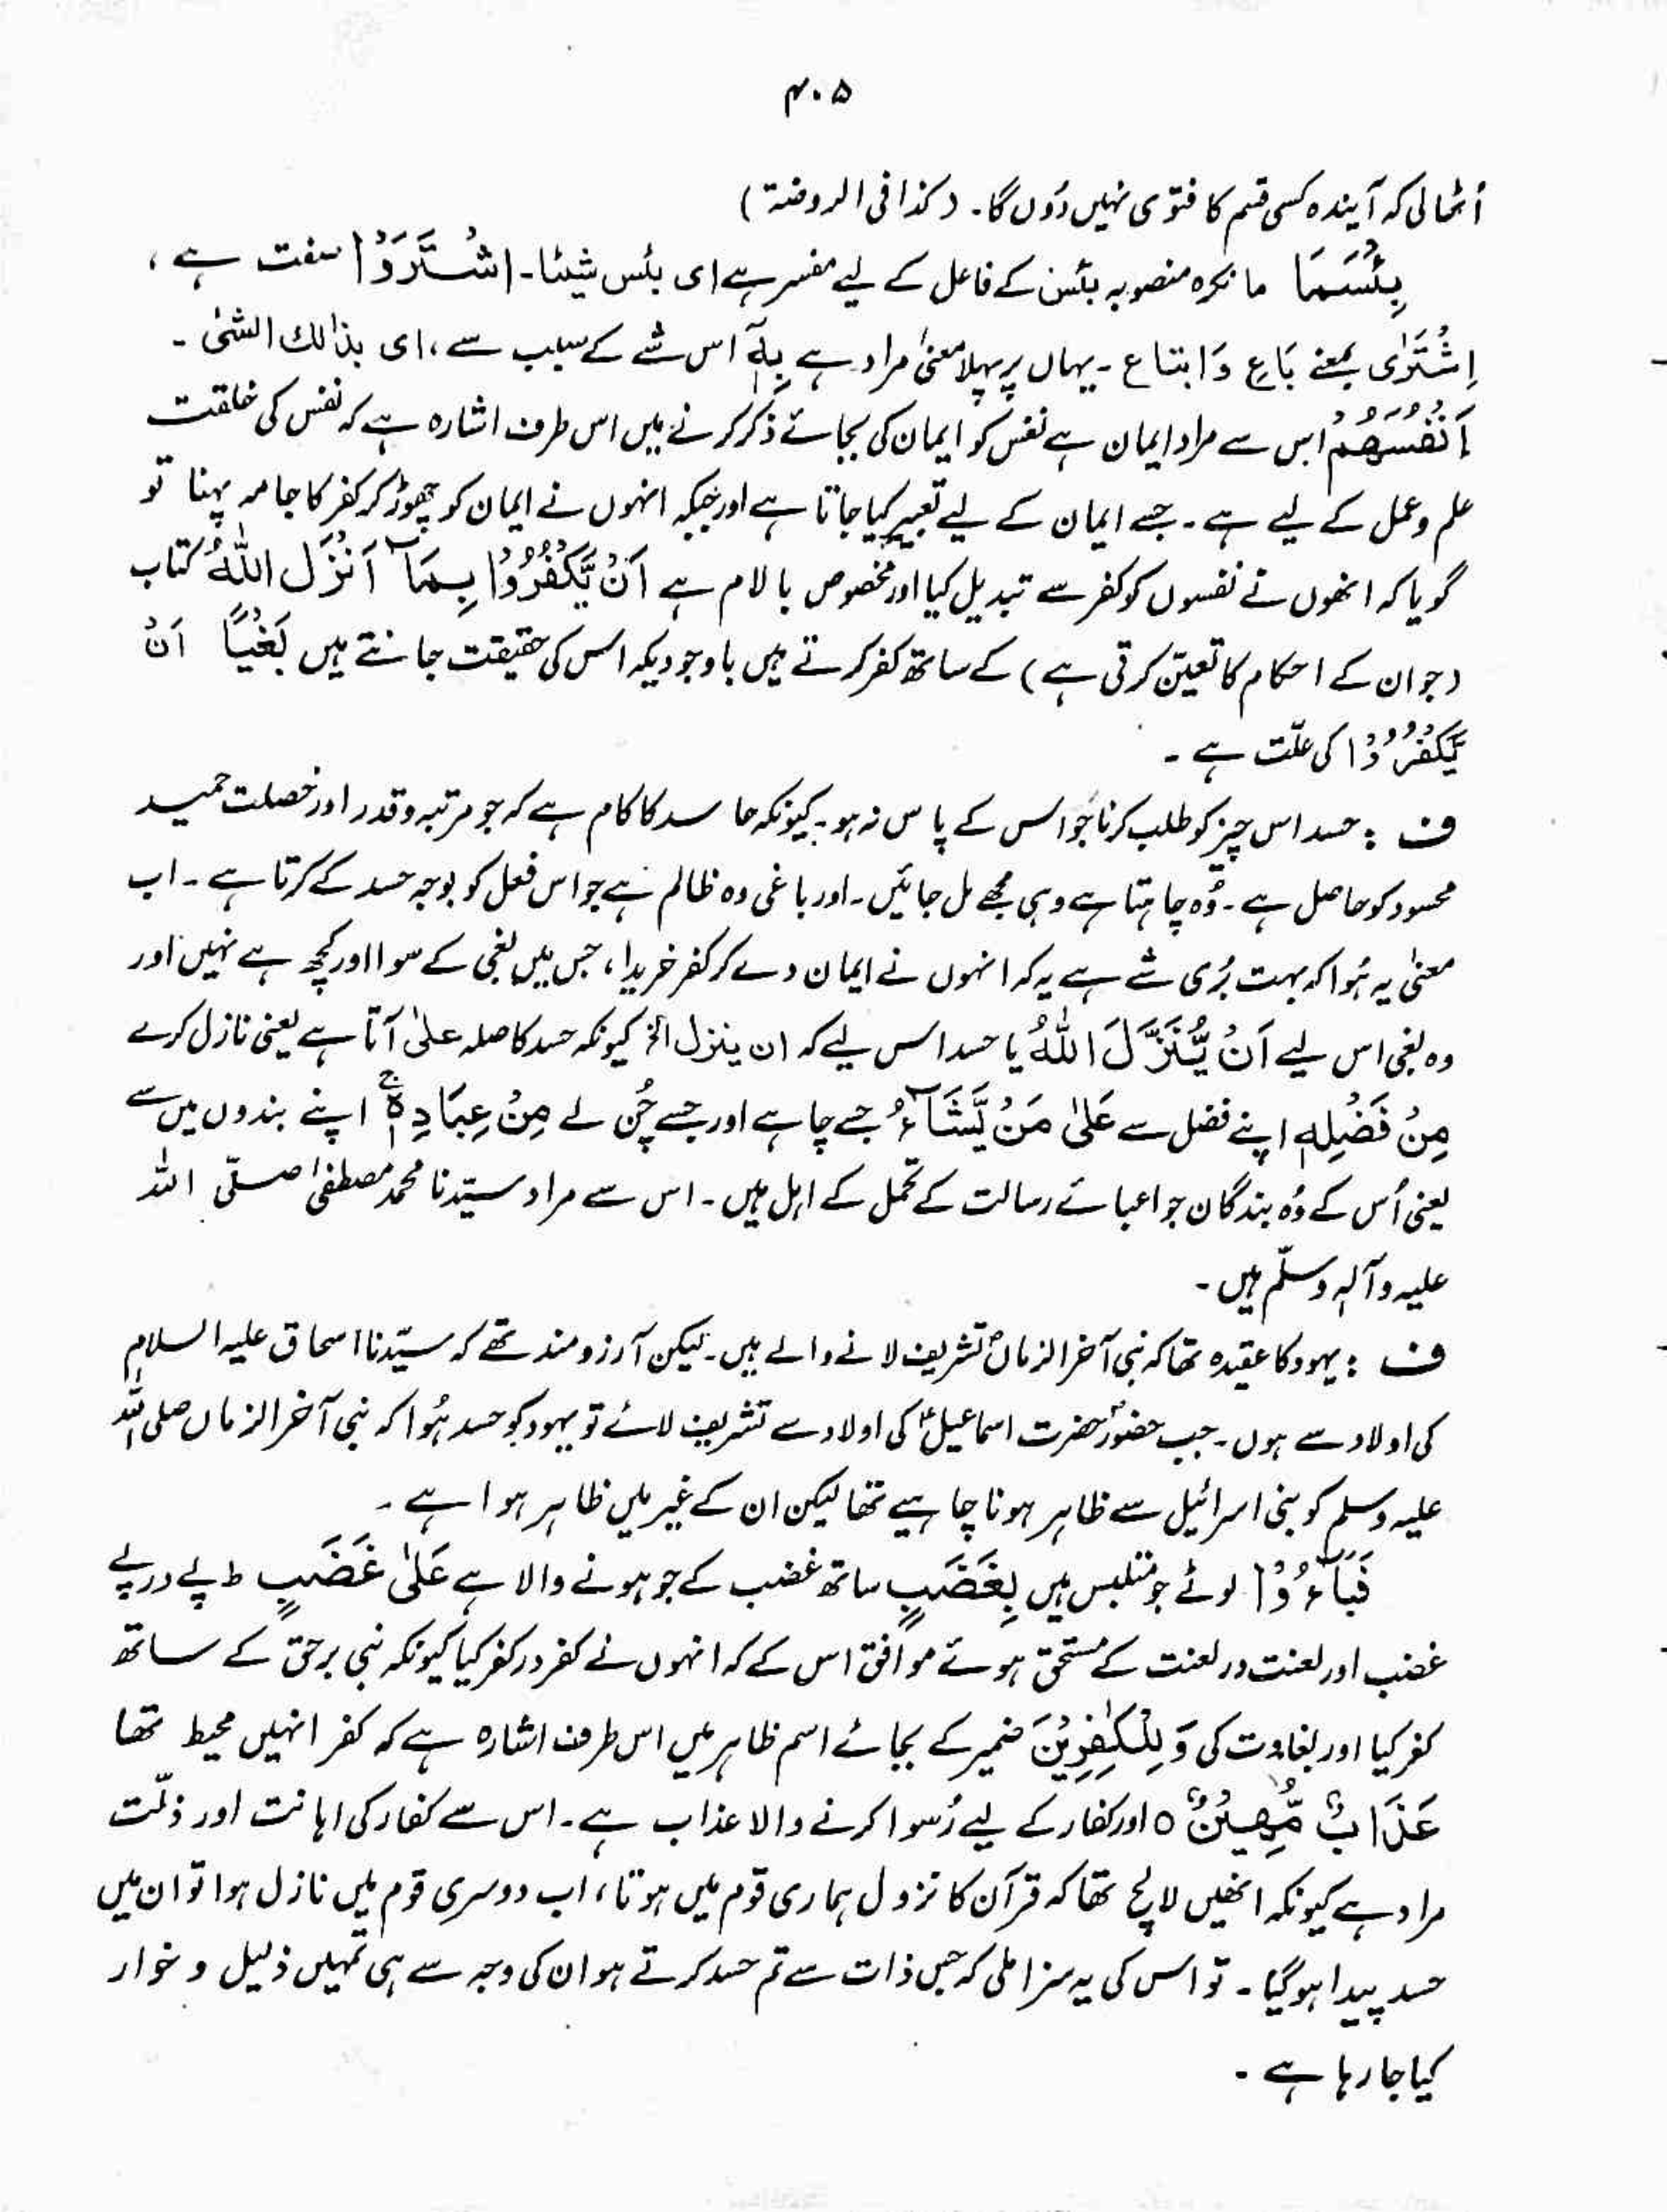 ۴۰۵
اُٹھالی کہ آیندہ کسی قسم کا فتوٰی نہیں دُوں گا۔ (کذا فی الروضۃ)
بِئْسَمَا ما نکرہ منصوبہ بئس کے فاعل کے لیے مفسر ہے ای بئس شیئا۔ اشْتَرَوْا صفت ہے،
اِشْتَرٰی بمعنے بَاعِ وَ ابتاع۔ یہاں پر پہلا معنیٰ مراد ہے بِهٖٓ اس شے کے سبب سے، ای بذالك الشئ۔
اَنْفُسَهُمْ اس سے مراد ایمان ہے نفس کو ایمان کی بجائے ذکر کرنے میں اس طرف اشارہ ہے کہ نفس کی خلقت
علم و عمل کے لیے ہے۔ جسے ایمان کے لیے تعبیر کیا جاتا ہے اور جبکہ انہوں نے ایمان کو چھوڑ کر کفر کا جامہ پہنا تو
گویا کہ انھوں نے نفسوں کو کفر سے تبدیل کیا اور مخصوص بالام ہے اَنْ يَّكْفُرُوْا بِمَآ اَنْزَلَ اللّٰهُ کتاب
(جو ان کے احکام کا تعیّن کرتی ہے) کے ساتھ کفر کرتے ہیں باوجودیکہ اس کی حقیقت جانتے ہیں بَغْيًا اَنْ
يَّكْفُرُوْا کی علّت ہے۔
ف : حسد اس چیز کو طلب کرنا جو اس کے پاس نہ ہو۔ کیونکہ حاسد کا کام ہے کہ جو مرتبہ و قدر اور خصلت حمید
محسود کو حاصل ہے۔ وُہ چاہتا ہے وہی مجھے مل جائیں۔ اور باغی وہ ظالم ہے جو اس فعل کو بوجہ حسد کے کرتا ہے۔ اب
معنیٰ یہ ہُوا کہ بہت بُری شے ہے یہ کہ انہوں نے ایمان دے کر کفر خریدا، جس میں بغی کے سوا اور کچھ ہے نہیں اور
وہ بغی اس لیے اَنْ يُّنَزِّلَ اللّٰهُ یا حسد اس لیے کہ ان ینزل الخ کیونکہ حسد کا صلہ علیٰ آتا ہے یعنی نازل کرے
مِنْ فَضْلِهٖ اپنے فضل سے عَلٰى مَنْ يَّشَآءُ جسے چاہے اور جسے چُن لے مِنْ عِبَادِهٖ ج اپنے بندوں میں سے
یعنی اُس کے وُہ بندگان جو اعبائے رسالت کے تحمل کے اہل ہیں۔ اس سے مراد سیّدنا محمد مصطفیٰ صلّی اللہ
علیہ وآلہٖ وسلّم ہیں۔
ف : یہود کا عقیدہ تھا کہ نبی آخر الزماںؐ تشریف لانے والے ہیں۔ لیکن آرزومند تھے کہ سیّدنا اسحاق علیہ السلام
کی اولاد سے ہوں۔ جب حضورؐ حضرت اسماعیلؑ کی اولاد سے تشریف لائے تو یہود کو حسد ہُوا کہ نبی آخر الزماں صلی اللہ
علیہ وسلم کو بنی اسرائیل سے ظاہر ہونا چاہیے تھا لیکن ان کے غیر میں ظاہر ہوا ہے۔
فَبَآءُوْا لوٹے جو متلبس ہیں بِغَضَبٍ ساتھ غضب کے جو ہونے والا ہے عَلٰى غَضَبٍ ط پے در پے
غضب اور لعنت در لعنت کے مستحق ہوئے موافق اس کے کہ انہوں نے کفر در کفر کیا کیونکہ نبی برحق کے ساتھ
کفر کیا اور بغاوت کی وَ لِلْكٰفِرِيْنَ ضمیر کے بجائے اسم ظاہر میں اس طرف اشارہ ہے کہ کفر انہیں محیط تھا
عَذَابٌ مُّهِيْنٌ ٥ اور کفار کے لیے رُسوا کرنے والا عذاب ہے۔ اس سے کفار کی اہانت اور ذلّت
مراد ہے کیونکہ انھیں لالچ تھا کہ قرآن کا نزول ہماری قوم میں ہوتا، اب دوسری قوم میں نازل ہوا تو ان میں
حسد پیدا ہوگیا۔ تو اس کی یہ سزا ملی کہ جس ذات سے تم حسد کرتے ہو ان کی وجہ سے ہی تمہیں ذلیل و خوار
کیا جا رہا ہے۔